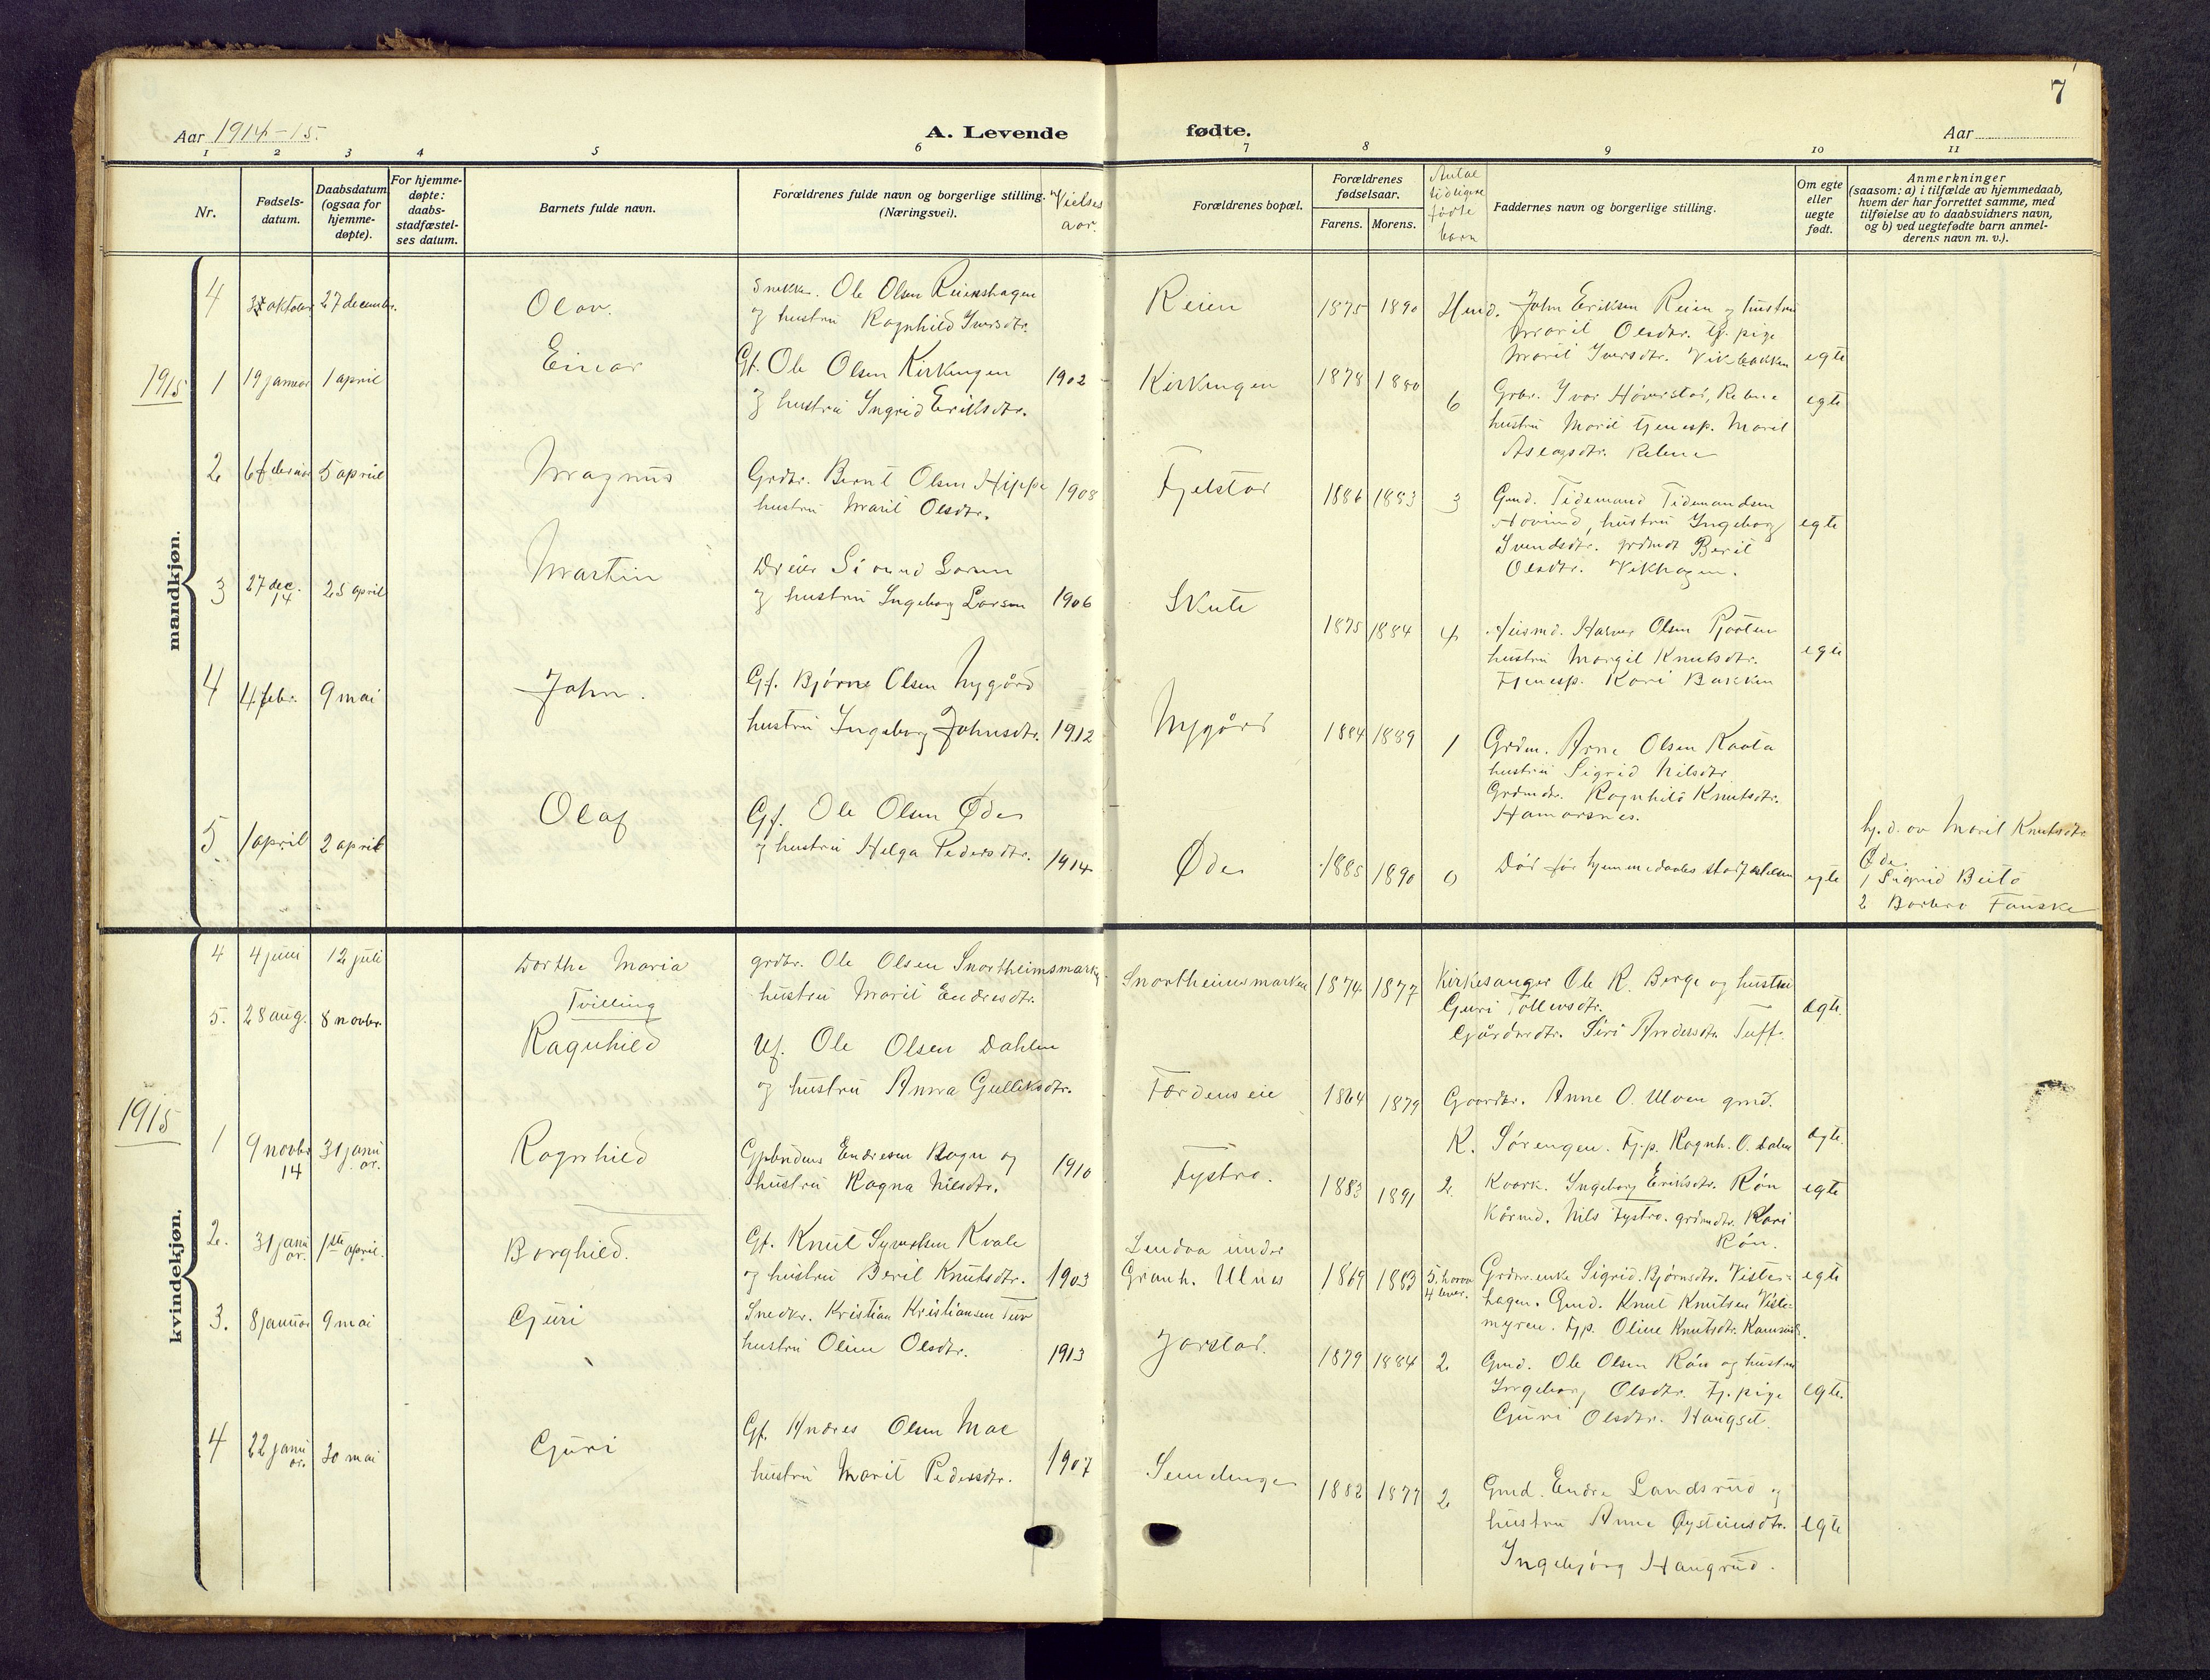 7
Aar 1914-15.
A. Levende
fødte.
Aar
1 2 3 4 5 6 7 8 9 10 11
Nr.
Fødsels-
datum.
Daabsdatum
(ogsaa for
hjemme-
døpte).
For hjemme-
døpte:
daabs-
stadfæstel-
ses datum.
Barnets fulde navn.
Forældrenes fulde navn og borgerlige stilling.
(Næringsvei).
Vielses
aar.
Forældrenes bopæl.
Forældrenes
fødselsaar.
Farens. Morens.
Antal
tidligere
fødte
barn
Faddernes navn og borgerlige stilling.
Om egte
eller
uegte
født.
Anmerkninger
(saasom: a) i tilfælde av hjemmedaab,
hvem der har forrettet samme, med
tilføielse av to daabsvidners navn,
og b) ved uegtefødte barn anmel-
derens navn m. v.).
mandkjøn.
4 oktober 27 decembr. Olav.
Snekk. Ole Olsen Reienshagen
og hustru Ragnhild Iversdtr.
Reien 1875 1890
Hmd. John Eriksen Reien og hustru
Marit Olsdtr. tj. pige
Marit Iversdtr. Vikbakken egte
1915
1 19 januar 1 april Einar
Gf. Ole Olsen Kirkingen
og hustru Ingrid Eriksdtr. 1902
Kirkingen 1878 1880 6
Grbr. Ivar Høverstad, Rebne
hustru Marit tjenesp. Marit
Aslagsdtr. Rebne egte
2 6 februar 5 april Magnus
Grdbr. Bernt Olsen Hippe
hustru Marit Olsdtr. 1908
Fjelstad 1886 1883 3
Gmd. Tidemand Tidemandsen
Hovind, hustru Ingeborg
Svendsdtr. grdmdt Berit
Olsdtr. Vikhagen. egte
3 27 dec. 14 25 april Martin
Dreier Larsen
og hustru Ingeborg Larsen 1906
Skute 1875 1884 4
Husmd. Halvor Olsen
hustru Margit Knutsdtr.
Tjenesp. Kari Bakken egte
4 4 febr. 9 mai John.
Gf. Bjørne Olsen Nygård
hustru Ingeborg Johnsdtr. 1912
Nygård 1884 1889 1
Grdm. Arne Olsen Kaata
hustru Sigrid Nilsdtr.
Grdmdtr. Ragnhild Knutsdtr.
Hamarsnes.
5. 1 april 2 april Olaf
Gf. Ole Olsen Øde
og hustru Helga Pedersdtr. 1914
Øde 1885 1890 0
Død før hjemmedaabs stadfæstelsen egte
hj. d. av Marit Knutsdtr
Øde
1 Sigrid Beito
2 Barbro Fauske
kvindekjøn.
4 4 juni 12 juli Dorthe Maria
Tvilling
grdbr. Ole Olsen Snortheimsmarken
hustru Marit Endresdtr.
Snortheimsmarken 1874 1877
Kirkesanger Ole K. Berge og hustru
Guri Tollevsdtr.
Gårdmdtr. Siri Andersdtr. Tuff. ægte.
5. 28 aug. 8 novbr. Ragnhild
Uf. Ole Olsen Dahlen
og hustru Anna Gulliksdtr.
Førdenseie 1864 1879
Gaardbr. Anne O. Ulven gmd.
K. Sørengen. Tj.p. Ragnh. O. Dalen ægte.
1915
1 9 novbr 14 31 januar. Ragnhild
Endresen Bagn og
hustru Ragna Nilsdtr. 1910
Fystro. 1883 1891 2.
Kaark. Ingeborg Eriksdtr. Røn
Kårmd. Nils Fystro. grdmdtr. Kari
Røn. egte
2. 31 januar. 1ste april. Borghild.
Gf. Knut Syversen Kvale
og hustru Berit Knutsdtr. 1903
Lendaa under
Granh. Ulnes 1869 1883 5. hvorav
4 lever.
Grdm.enke Sigrid Bjørnsdtr. Vister-
hagen. Gmd. Knut Knutsen Viste-
myren. Tjp. Oline Knutsdtr. egte
3. 8 januar 9 mai Guri
Snedkr. Kristian Kristiansen Tuv
hustru Oline Olsdtr. 1913
Jarstad. 1879 1884 2
Gmd. Ole Olsen Røn og hustru
Ingeborg Olsdtr. Tj. pige
Guri Olsdtr. Haugset. egte.
4 22 januar. 30 mai Guri
Gf. Andres Olsen Moe
hustru Marit Pedersdtr. 1907
1882 1877 2
Gmd. Endre Landsrud og
hustru Anne Øysteinsdtr.
Ingebjørg Haugrud. egte